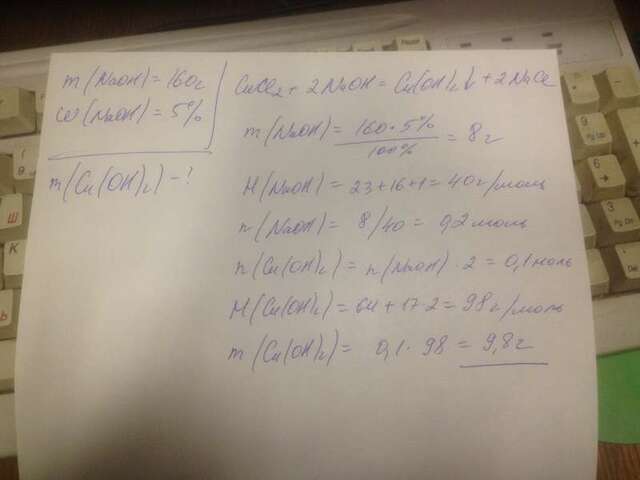 m(NaOH)=160г
ω(NaOH)=5%
m(Cu(OH)₂)-?
CuCl₂+2NaOH=Cu(OH)₂↓+2NaCl
m(NaOH)=160·5%/100%=8г
M(NaOH)=23+16+1=40г/моль
n(NaOH)=8/40=0,2моль
n(Cu(OH)₂)=n(NaOH)·2=0,1моль
M(Cu(OH)₂)=64+17·2=98г/моль
m(Cu(OH)₂)=0,1·98=9,8г
Pause
Ш
К
9
6
3